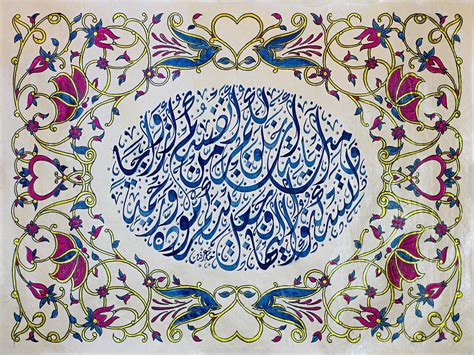 ومن آياته أن خلق لكم من أنفسكم أزواجا
لتسكنوا إليها وجعل بينكم مودة ورحمة